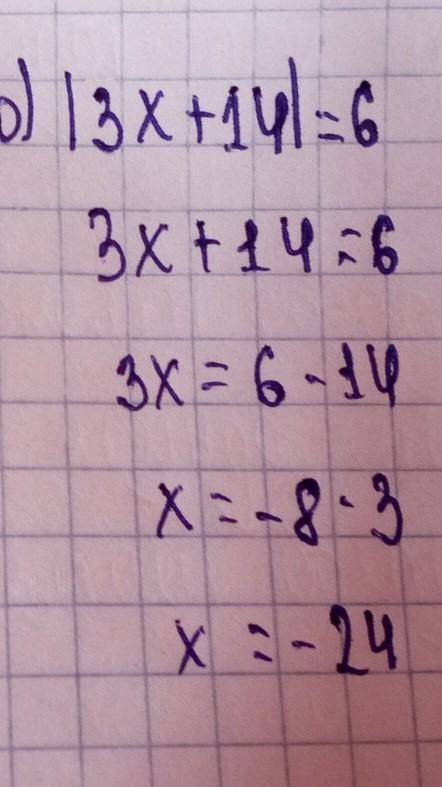 ю) |3x+14|=6
3x+14=6
3x=6-14
x=-8·3
x=-24